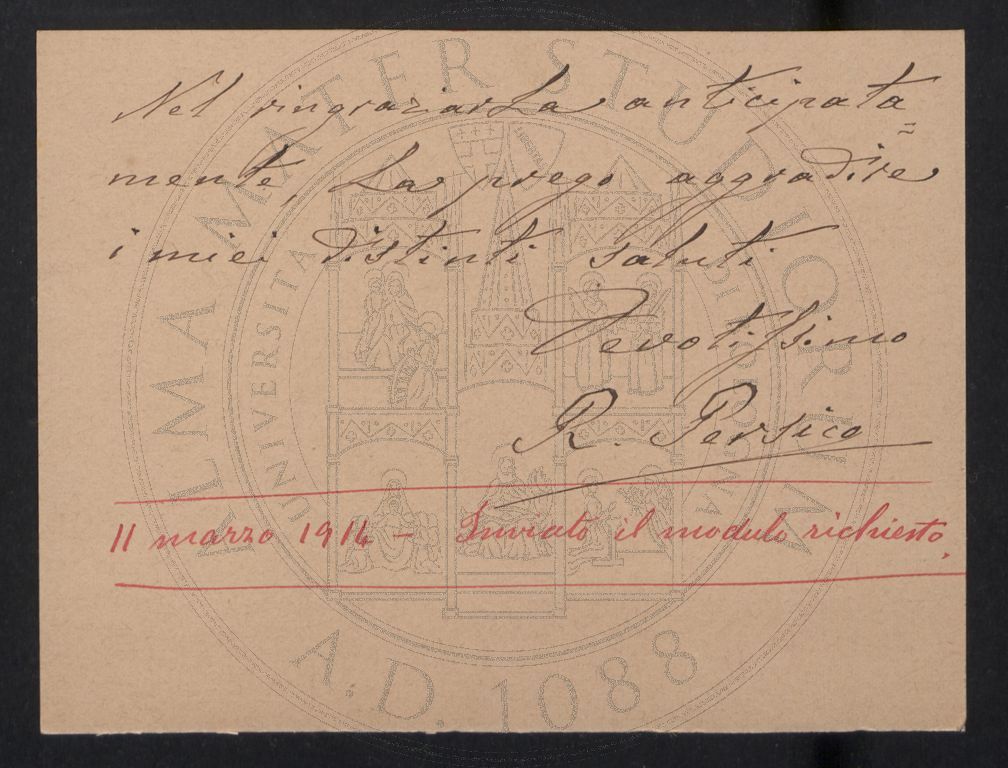 Nel ringraziarLa anticipata=
mente, La prego aggradire
i miei distinti saluti
Devotissimo
R. Persico
11 marzo 1914 - Inviato il modulo richiesto.
ALMA MATER STUDIORUM
A.D. 1088